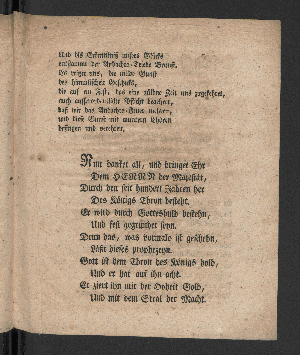 Und des Erkenntniß unsers Glücks
entflamm der Andachts-Triebe Brunst.
Da zeiget uns, die milde Gunst
des himmlischen Geschicks,
die auf ein Fest, das eine güldne Zeit uns zugekehret,
auch ausserordentliche Pflicht begehret,
daß wir das Andachts-Feuer
und diese Gunst mit muntern Chören
besingen und verehren.
Nun danket all, und bringet Ehr
Dem HERRN der Majestät,
Durch den seit hundert Jahren her
Des Königs Thron besteht.
Er wird durch Gotteshuld bestehn,
Und fest gegründet seyn.
Denn das, was vormals ist geschehn,
Läßt dieses prophezeyn.
Gott ist dem Thron des Königs hold,
Und er hat auf ihn acht.
Er ziert ihn mit der Hoheit Gold,
Und mit dem Stral der Macht.